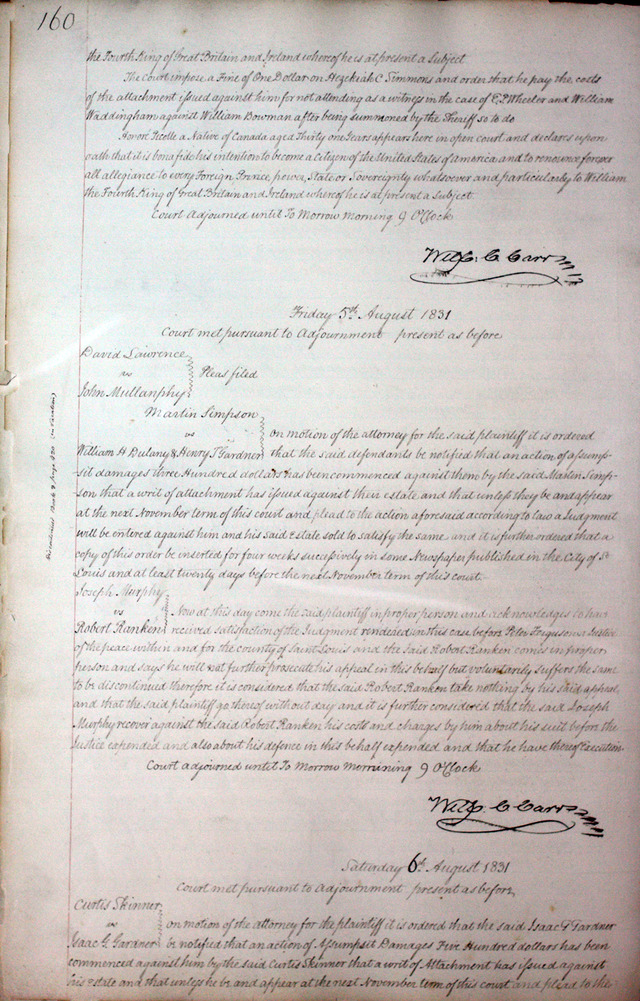 160
the Fourth King of Great Britain and Ireland whereof he is at present a Subject
The Court impose a Fine of One Dollar on Hezekiah C. Simmons and order that he pay the costs
of the attachment issued against him for not attending as a witness in the case of E. P. Wheeler and William
Waddingham against William Bowman after being summoned by the Sheriff so to do
Honore Picolle a Native of Canada aged Thirty one Years appears here in open court and declares upon
oath that it is bona fide his intention to become a citizen of the United States of America and to renounce forever
all allegiance to every Foreign Prince, power, State or Sovereignty whatsoever and particularly to William
the Fourth King of Great Britain and Ireland whereof he is at present a Subject.
Court Adjourned until To Morrow Morning 9 O'Clock
Will. C. Carr
Friday 5th August 1831
Court met pursuant to Adjournment present as before
David Lawrence
vs Pleas filed
John Mullanphy
Martin Simpson
vs on motion of the attorney for the said plaintiff it is ordered
William H Dulany & Henry T Gardner that the said defendants be notified that an action of assump-
sit damages three Hundred dollars has been commenced against them by the said Martin Simp-
son that a writ of attachment has issued against their estate and that unless they be and appear
at the next November term of this court and plead to the action aforesaid according to law a Judgment
will be entered against him and his said estate sold to satisfy the same and it is further ordered that a
copy of this order be inserted for four weeks sucessively in some Newspaper published in the City of St
Louis and at least twenty days before the next November term of this court.
Joseph Murphy
vs Now at this day come the said plaintiff in proper person and acknowledges to have
Robert Ranken received satisfaction of the Judgment rendered in this case before Peter Ferguson a Justice
of the peace within and for the county of Saint Louis and the Said Robert Ranken comes in proper
person and says he will not further prosecute his appeal in this behalf but voluntarily suffers the same
to be discontinued therefore it is considered that the said Robert Ranken take nothing by his said appeal,
and that the said plaintiff go thereof without day and it is further considered that the said Joseph
Murphy recover against the said Robert Ranken his costs and charges by him about his suit before the
Justice expended and also about his defence in this behalf expended and that he have thereof Execution.
Court adjourned until To Morrow Morning 9 O'Clock
Will. C. Carr
Saturday 6th August 1831
Court met pursuant to Adjournment present as before,
Curtis Skinner
vs on motion of the attorney for the plaintiff it is ordered that the said Isaac G Gardner
Isaac G. Gardner be notified that an action of Assumpsit Damages Five Hundred dollars has been
commenced against him by the said Curtis Skinner that a writ of Attachment has issued against
his estate and that unless he be and appear at the next November term of this court and plead to the